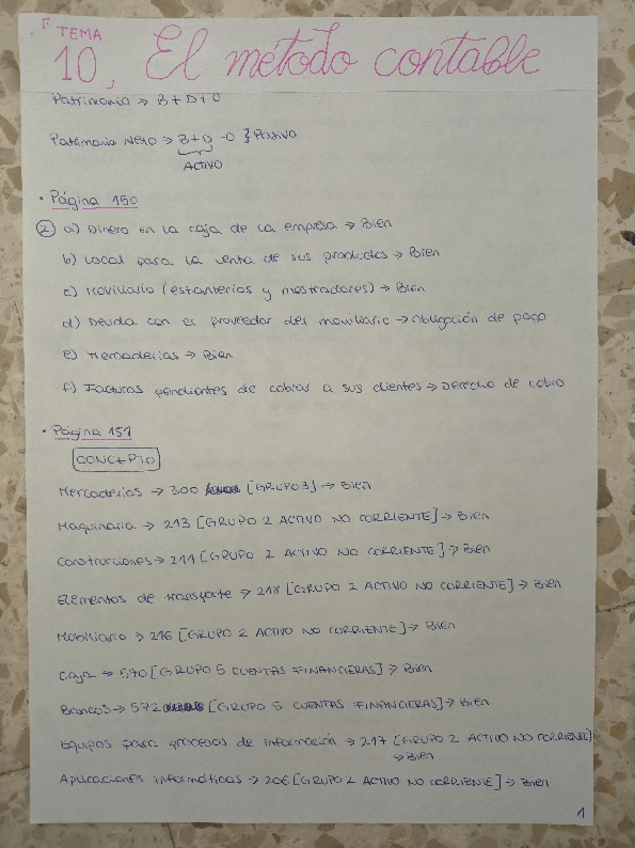 TEMA
10, El método contable
Patrimonio → B+D+O
Patrimonio Neto → B+D -O } Pasivo
ACTIVO
• Página 150
② a) Dinero en la caja de la empresa → Bien
b) Local para la venta de sus productos → Bien
c) Moviliario (estanterias y mostradores) → Bien
d) Deuda con el proveedor del moviliario → Obligación de pago
e) Mercaderías → Bien
f) Facturas pendientes de cobrar a sus clientes → Derecho de cobro
• Página 151
CONCEPTO
Mercaderias → 300 [GRUPO 3] → Bien
Maquinaria → 213 [GRUPO 2 ACTIVO NO CORRIENTE] → Bien
Construcciones → 211 [GRUPO 2 ACTIVO NO CORRIENTE] → Bien
Elementos de transporte → 218 [GRUPO 2 ACTIVO NO CORRIENTE] → Bien
Mobiliario → 216 [GRUPO 2 ACTIVO NO CORRIENTE] → Bien
Caja → 570 [GRUPO 5 CUENTAS FINANCIERAS] → Bien
Bancos → 572 [GRUPO 5 CUENTAS FINANCIERAS] → Bien
Equipos para procesos de información → 217 [GRUPO 2 ACTIVO NO CORRIENTE]
→ Bien
Aplicaciones informáticas → 206 [GRUPO 2 ACTIVO NO CORRIENTE] → Bien
1